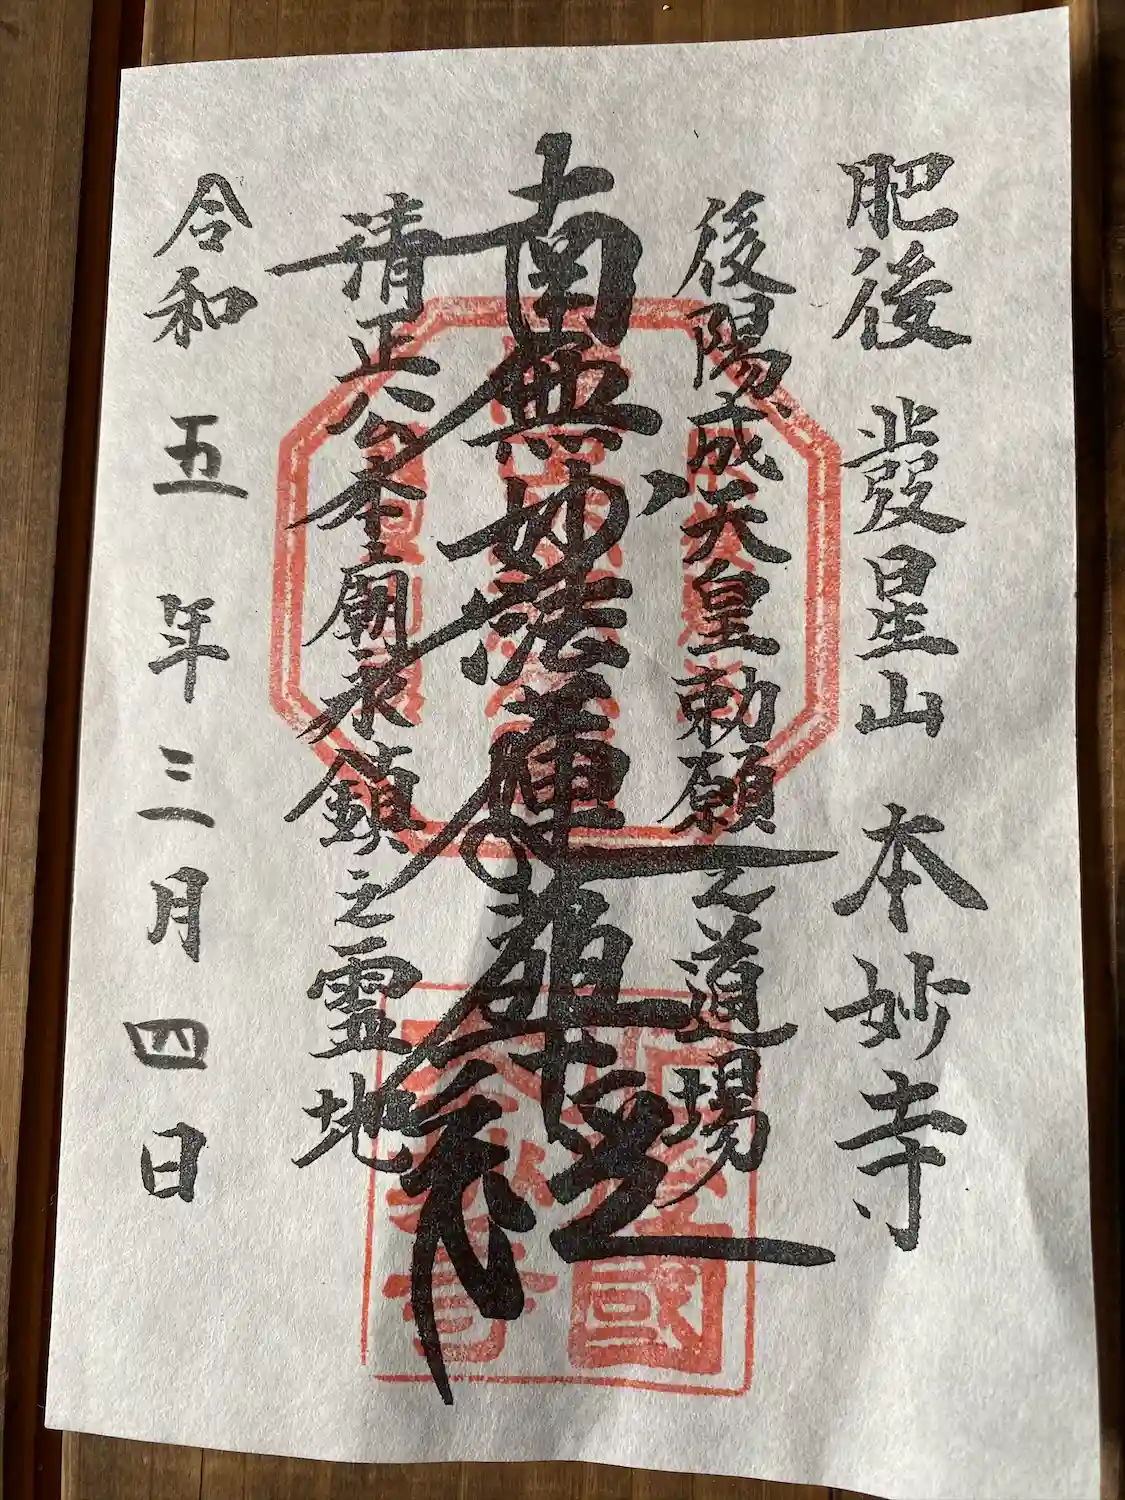 肥後 發星山 本妙寺
後陽成天皇勅願之道場
南無妙法蓮華経
清正公本廟永鎮之霊地
令和五年三月四日